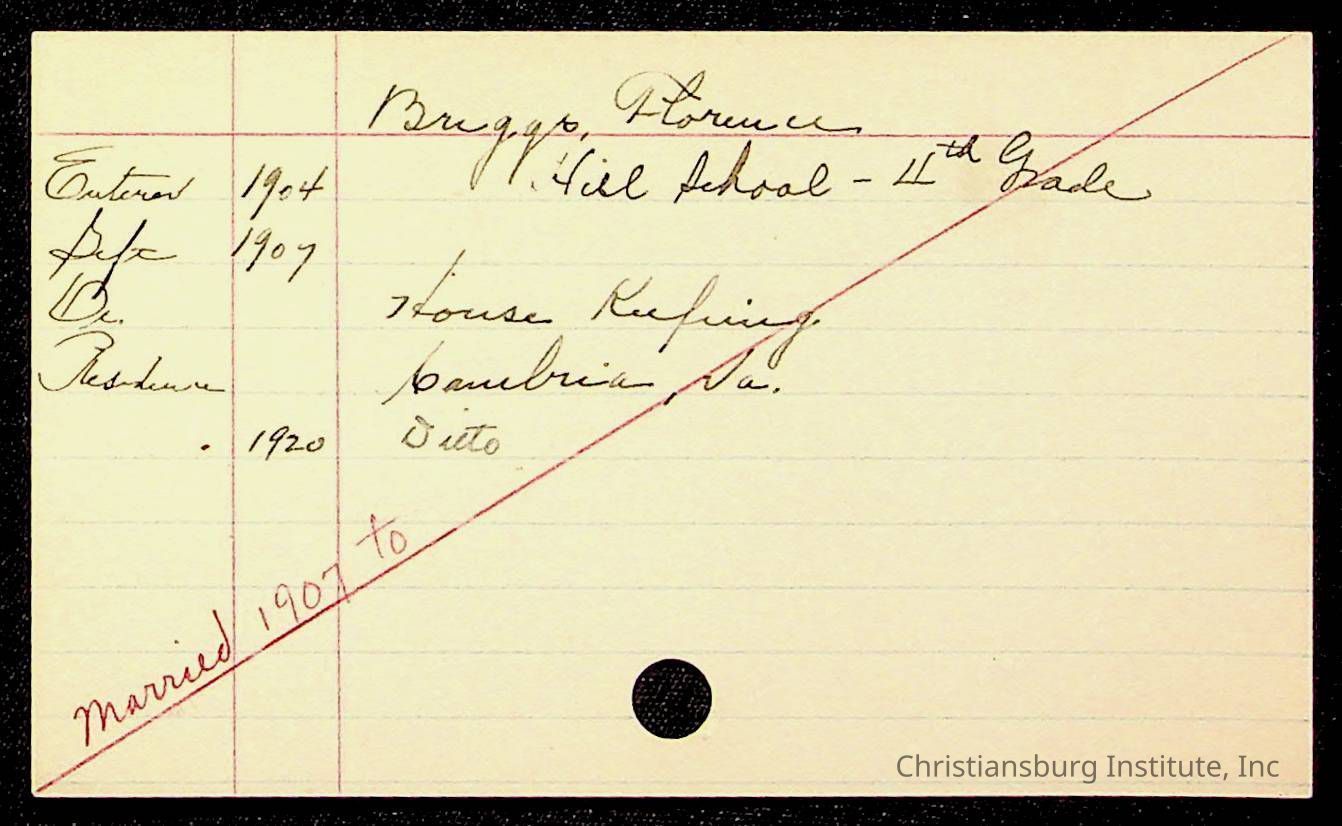 Briggs, Florence
Entered 1904 Hill School - 4th Grade
Left 1907
Oc. House Keeping
Residence Cambria, Va.
" 1920 Ditto
Married 1907 to
Christiansburg Institute, Inc